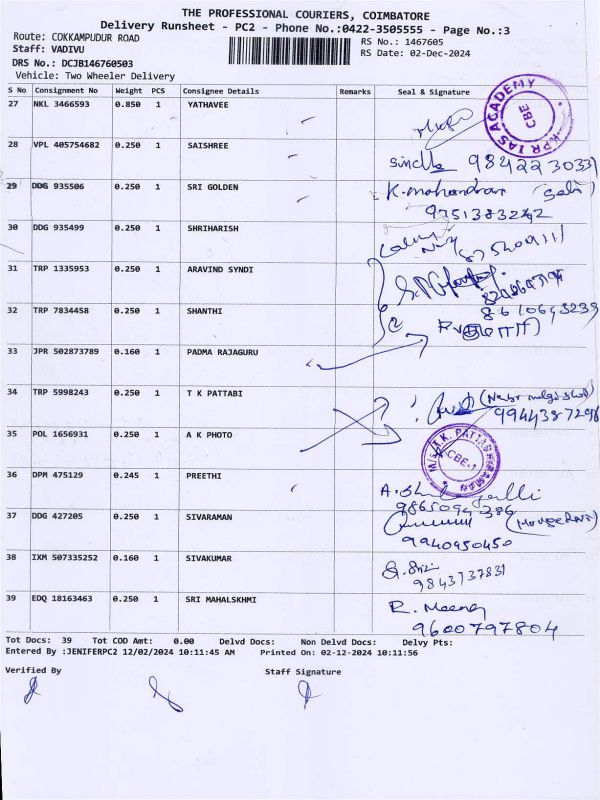 THE PROFESSIONAL COURIERS, COIMBATORE
Delivery Runsheet - PC2 - Phone No.:0422-3505555 - Page No.:3
Route: COKKAMPUDUR ROAD
RS No.: 1467605
Staff: VADIVU
RS Date: 02-Dec-2024
DRS No.: DCJB146760503
Vehicle: Two Wheeler Delivery
S No Consignment No Weight PCS Consignee Details Remarks Seal & Signature
27 NKL 3466593 0.850 1 YATHAVEE
KPR IAS ACADEMY CBE
28 VPL 405754682 0.250 1 SAISHREE
9842230331
29 DDG 935506 0.250 1 SRI GOLDEN
K. mohandran
9751383242
30 DDG 935499 0.250 1 SHRIHARISH
31 TRP 1335953 0.250 1 ARAVIND SYNDI
32 TRP 7834458 0.250 1 SHANTHI
33 JPR 502873789 0.160 1 PADMA RAJAGURU
34 TRP 5998243 0.250 1 T K PATTABI
9944387296
35 POL 1656931 0.250 1 A K PHOTO
M/S. T.K. PATTABHIRAMAN CBE-1
36 DPM 475129 0.245 1 PREETHI
9865094386
37 DDG 427205 0.250 1 SIVARAMAN
9940950450
38 IXM 507335252 0.160 1 SIVAKUMAR
9843737831
39 EDQ 18163463 0.250 1 SRI MAHALSKHMI
R. Meena
9600797804
Tot Docs: 39 Tot COD Amt: 0.00 Delvd Docs: Non Delvd Docs: Delvy Pts:
Entered By :JENIFERPC2 12/02/2024 10:11:45 AM Printed On: 02-12-2024 10:11:56
Verified By Staff Signature